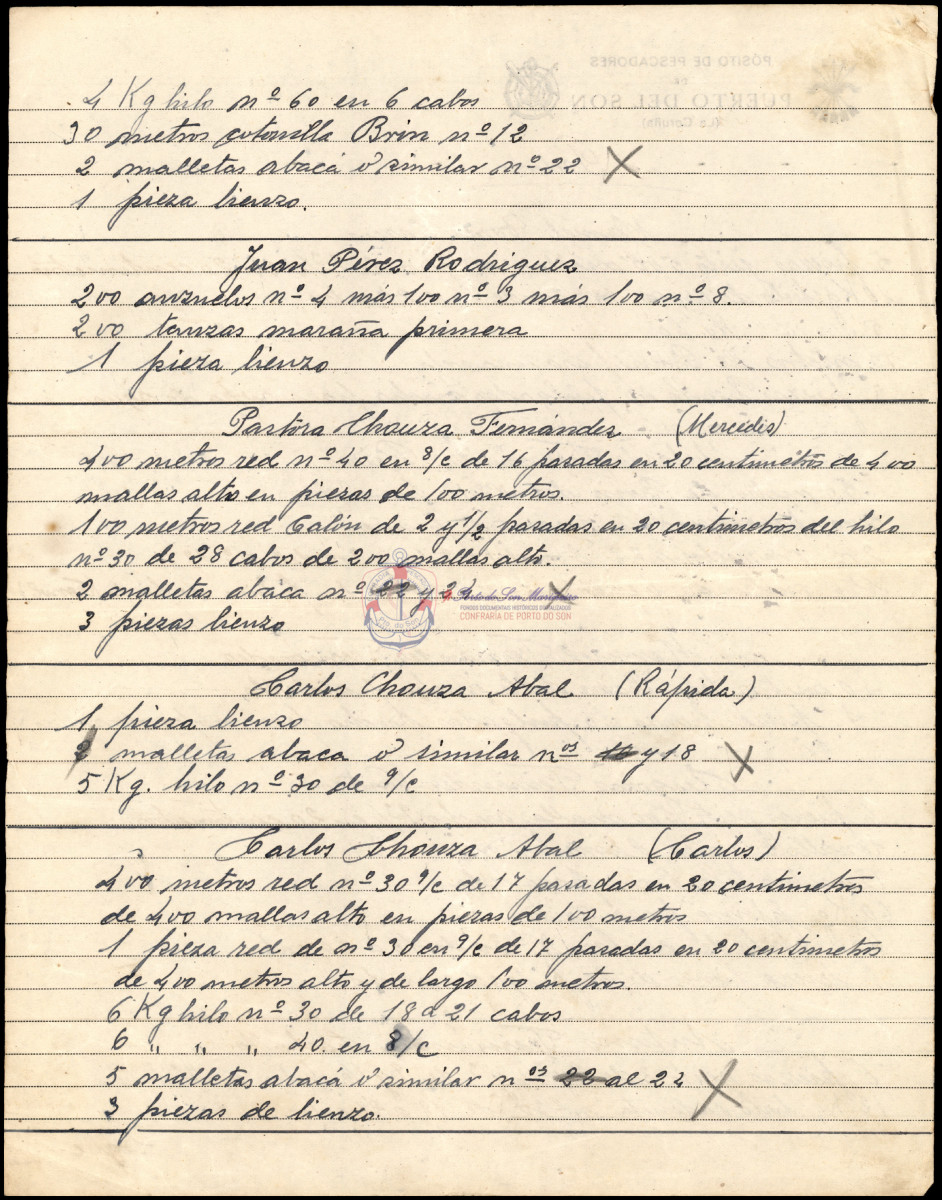 4 Kg hilo nº 60 en 6 cabos
30 metros cotonilla Brin nº 12
2 malletas abacá ó similar nº 22 X
1 pieza lienzo.
Juan Pérez Rodriguez
200 anzuelos nº 4 más 100 nº 3 más 100 nº 8.
200 tanzas maraña primera
1 pieza lienzo
Pastora Chouza Fernández (Mercedes)
400 metros red nº 40 en 8/c de 16 pasadas en 20 centimetros de 400
mallas alto en piezas de 100 metros.
100 metros red Calón de 2 y 1/2 pasadas en 20 centimetros del hilo
nº 30 de 28 cabos de 200 mallas alto.
2 malletas abaca nº 22 y 24 X
3 piezas lienzo
Carlos Chouza Abal (Rápida)
1 pieza lienzo
2 malletas abaca ó similar nos y 18 X
5 Kg. hilo nº 30 de 9/c
Carlos Chouza Abal (Carlos)
400 metros red nº 30 9/c de 17 pasadas en 20 centimetros
de 400 mallas alto en piezas de 100 metros
1 pieza red de nº 30 en 9/c de 17 pasadas en 20 centimetros
de 400 metros alto y de largo 100 metros.
6 Kg hilo nº 30 de 18 a 21 cabos
6 " " " 40. en 8/c
5 malletas abacá ó similar nos 22 al 24 X
3 piezas de lienzo.
PÓSITO DE PESCADORES
DE
PUERTO DEL SON
(La Coruña)
Porto do Son Mariñeiro
FONDOS DOCUMENTAIS HISTÓRICOS DIXITALIZADOS
CONFRARÍA DE PORTO DO SON